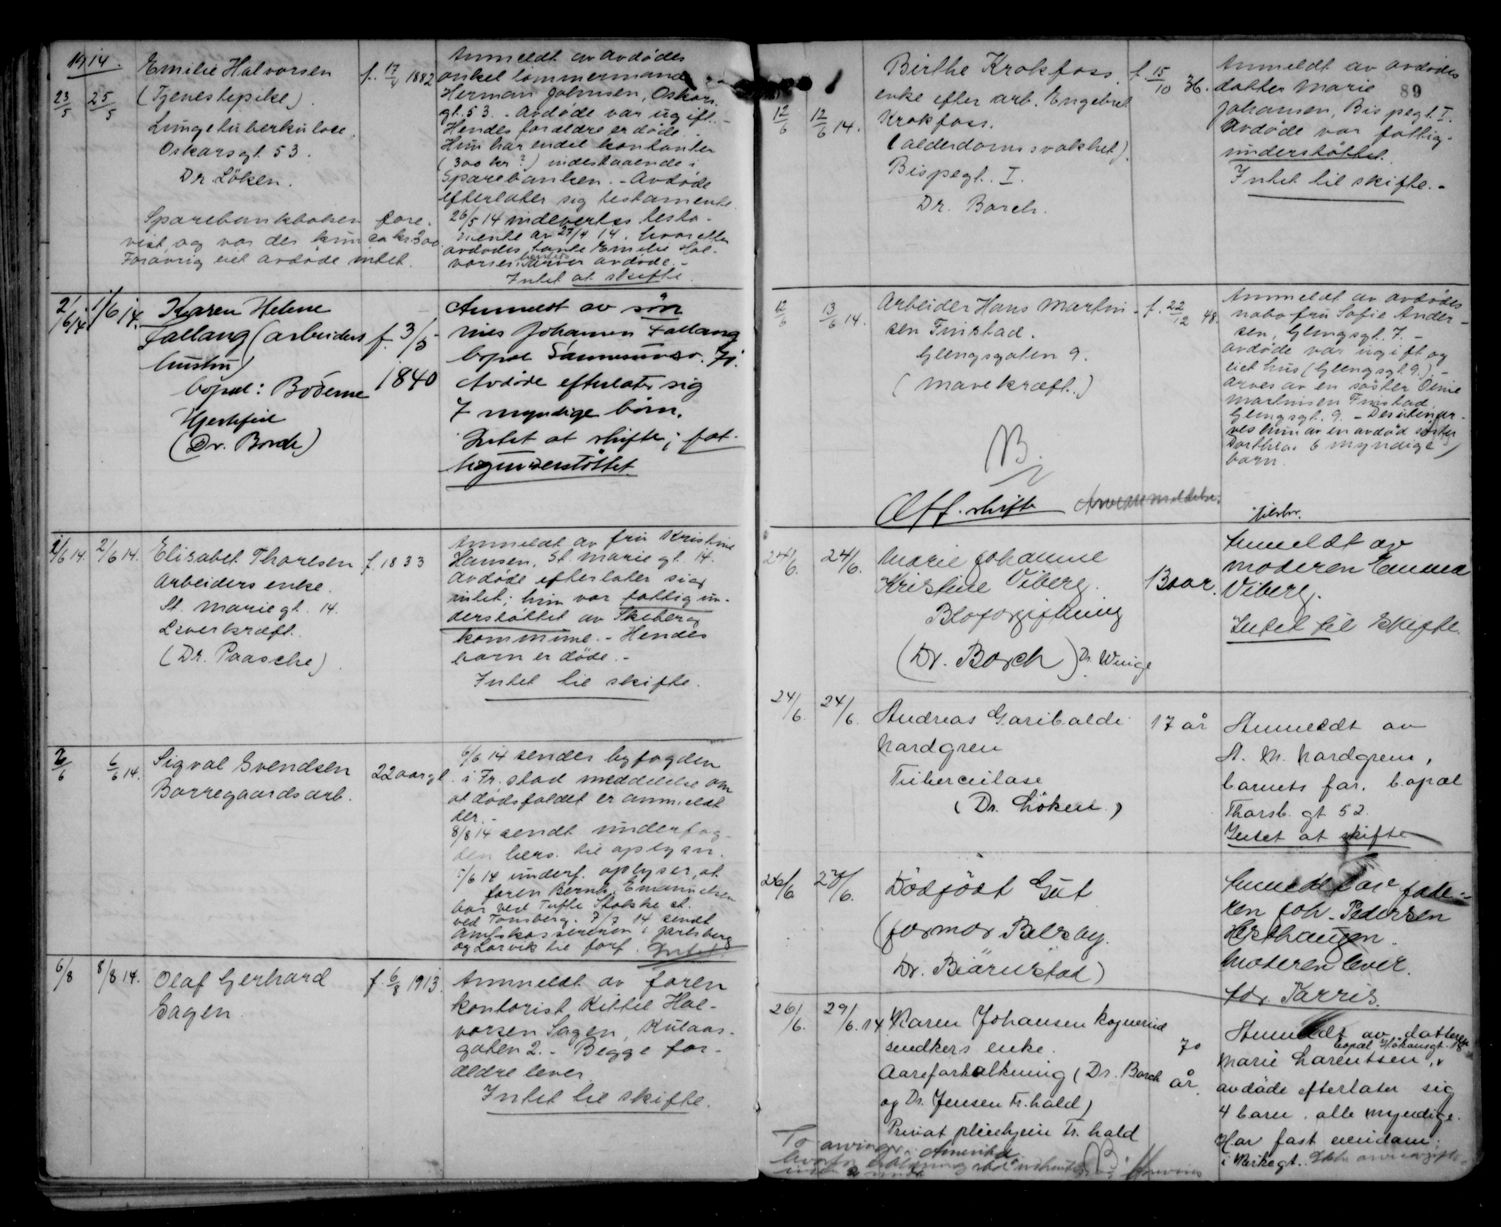 1914.
23/5 25/5
Emilie Halvorsen
(Tjenestepike).
Lungetuberkulose.
Oskarsgt. 53.
Dr Løken.
f. 17/4 1882
Anmeldt av avdødes
onkel tømmermand
Herman Johnsen, Oskars
gt. 53. Avdøde var ugift. -
Hendes forældre er døde.
Hun har endel kontanter
(300 kr?) indestaaende i
Sparebanken. - Avdøde
efterlater sig testamente.
26/5 14 indevertes testa-
mente av 14. hvorefter
avdødes tante Emilie Hal-
vorsen arver avdøde. -
Intet at skifte.
Sparebankboken fore-
vist, og var der kun ca kr 300.
Forøvrig eiet avdøde intet.
2/6 14 1/6 14.
Karen Helene
Fallang (arbeiders
hustru)
bopæl: Boderne
Hjertefeil
(Dr. Borch)
f. 3/5
1840
Anmeldt av søn
nes Johannes Fallang
bopæl
Avdøde efterlater sig
7 myndige børn.
Intet at skifte, fat-
tigunderstøttet
2/6 14 2/6 14.
Elisabet Thoresen
Arbeiders enke.
St. Mariegt. 14.
Leverkræft.
(Dr. Paasche).
f 1833
Anmeldt av fru Kristine
Hansen, St. Marie gt. 14.
Avdøde efterlater sig
intet; hun var fattig un-
derstøttet av Skeberg
kommune. - Hendes
barn er døde. -
Intet til skifte.
6/6 6/6 14.
Sigval Evendsen
Borregaardsarb.
22 aar gl.
6/6 14 sendes byfogden
i Fr.stad meddelelse om
at dødsfaldet er anmeldt
der. -
8/8 14 sendt underfog-
den hers. til oplysn.
/6 14 underf. oplyser, at
faren Bernh. Emanuelsen
bor ved Tufte Stokke st.
ved Tønsberg. 7/7 14 sendt
Amtskassereren i Jarlsberg
og Larvik til forf. Intet.
6/8 8/8 14.
Olaf Gerhard
Eagen.
f. 6/8 1913.
Anmeldt av faren
kontorist Kittil Hal-
vorsen Sagen, Kulaas-
gaten 2. - Begge for-
ældre lever
Intet til skifte.
89
12/6 12/6 14.
Birthe Krokfoss.
enke efter arb. Engebret
Krokfoss.
(alderdomssvakhet).
Bispegt. I.
Dr. Borch.
f 15/10 36.
Anmeldt av avdødes
datter Marie
Johansen, Bispegt. I.
Avdøde var fattig-
understøttet.
Intet til skifte. -
12/6 13/6 14.
Arbeider Hans Martin-
sen Tuistad.
Glengsgaten 9.
(mavekræft.)
NB.
Off. skifte
f. 22/12 48.
Anmeldt av avdødes
nabo fru Sofie Ander-
sen, Glengsgt. 7. -
Avdøde var ugift og
eiet hus (Glengsgt 9.) -
Arves av en søster Oline
Martinsen Tuistad
Glengsgt. 9. - Desuten ar-
ves hun av en avdød søster
Dortheas 6 myndige
barn.
24/6. 24/6.
Marie Johanne
Kristine Viberg.
Blodforgiftning
(Dr. Borch) Dr. Winge
8 aar.
Anmeldt av
moderen Emma
Viberg.
Intet til skifte.
24/6. 24/6.
Andreas Garibaldi
Nordgren
Tuberculose
(Dr. Løken.)
17 år
Anmeldt av
A. M. Nordgren,
barnets far, bopæl
Thorsb. gt 52.
Intet at skifte
26/6 27/6.
Dødfødt Gut
(jormor Belsby.
Dr. Björnstad)
Anmeldt av fade-
ren Joh. Pedersen
Moderen lever.
26/6. 29/6.14
Karen Johansen
enke.
Aareforkalkning (Dr. Borch
og Dr. Jensen Fr.hald)
Privat pleiehjem Fr.hald
70
år.
Anmeldt av datteren
Marie Larentsen,
avdøde efterlater sig
4 barn, alle myndige.
Har fast eiendom
i
To arvinger i Amerika